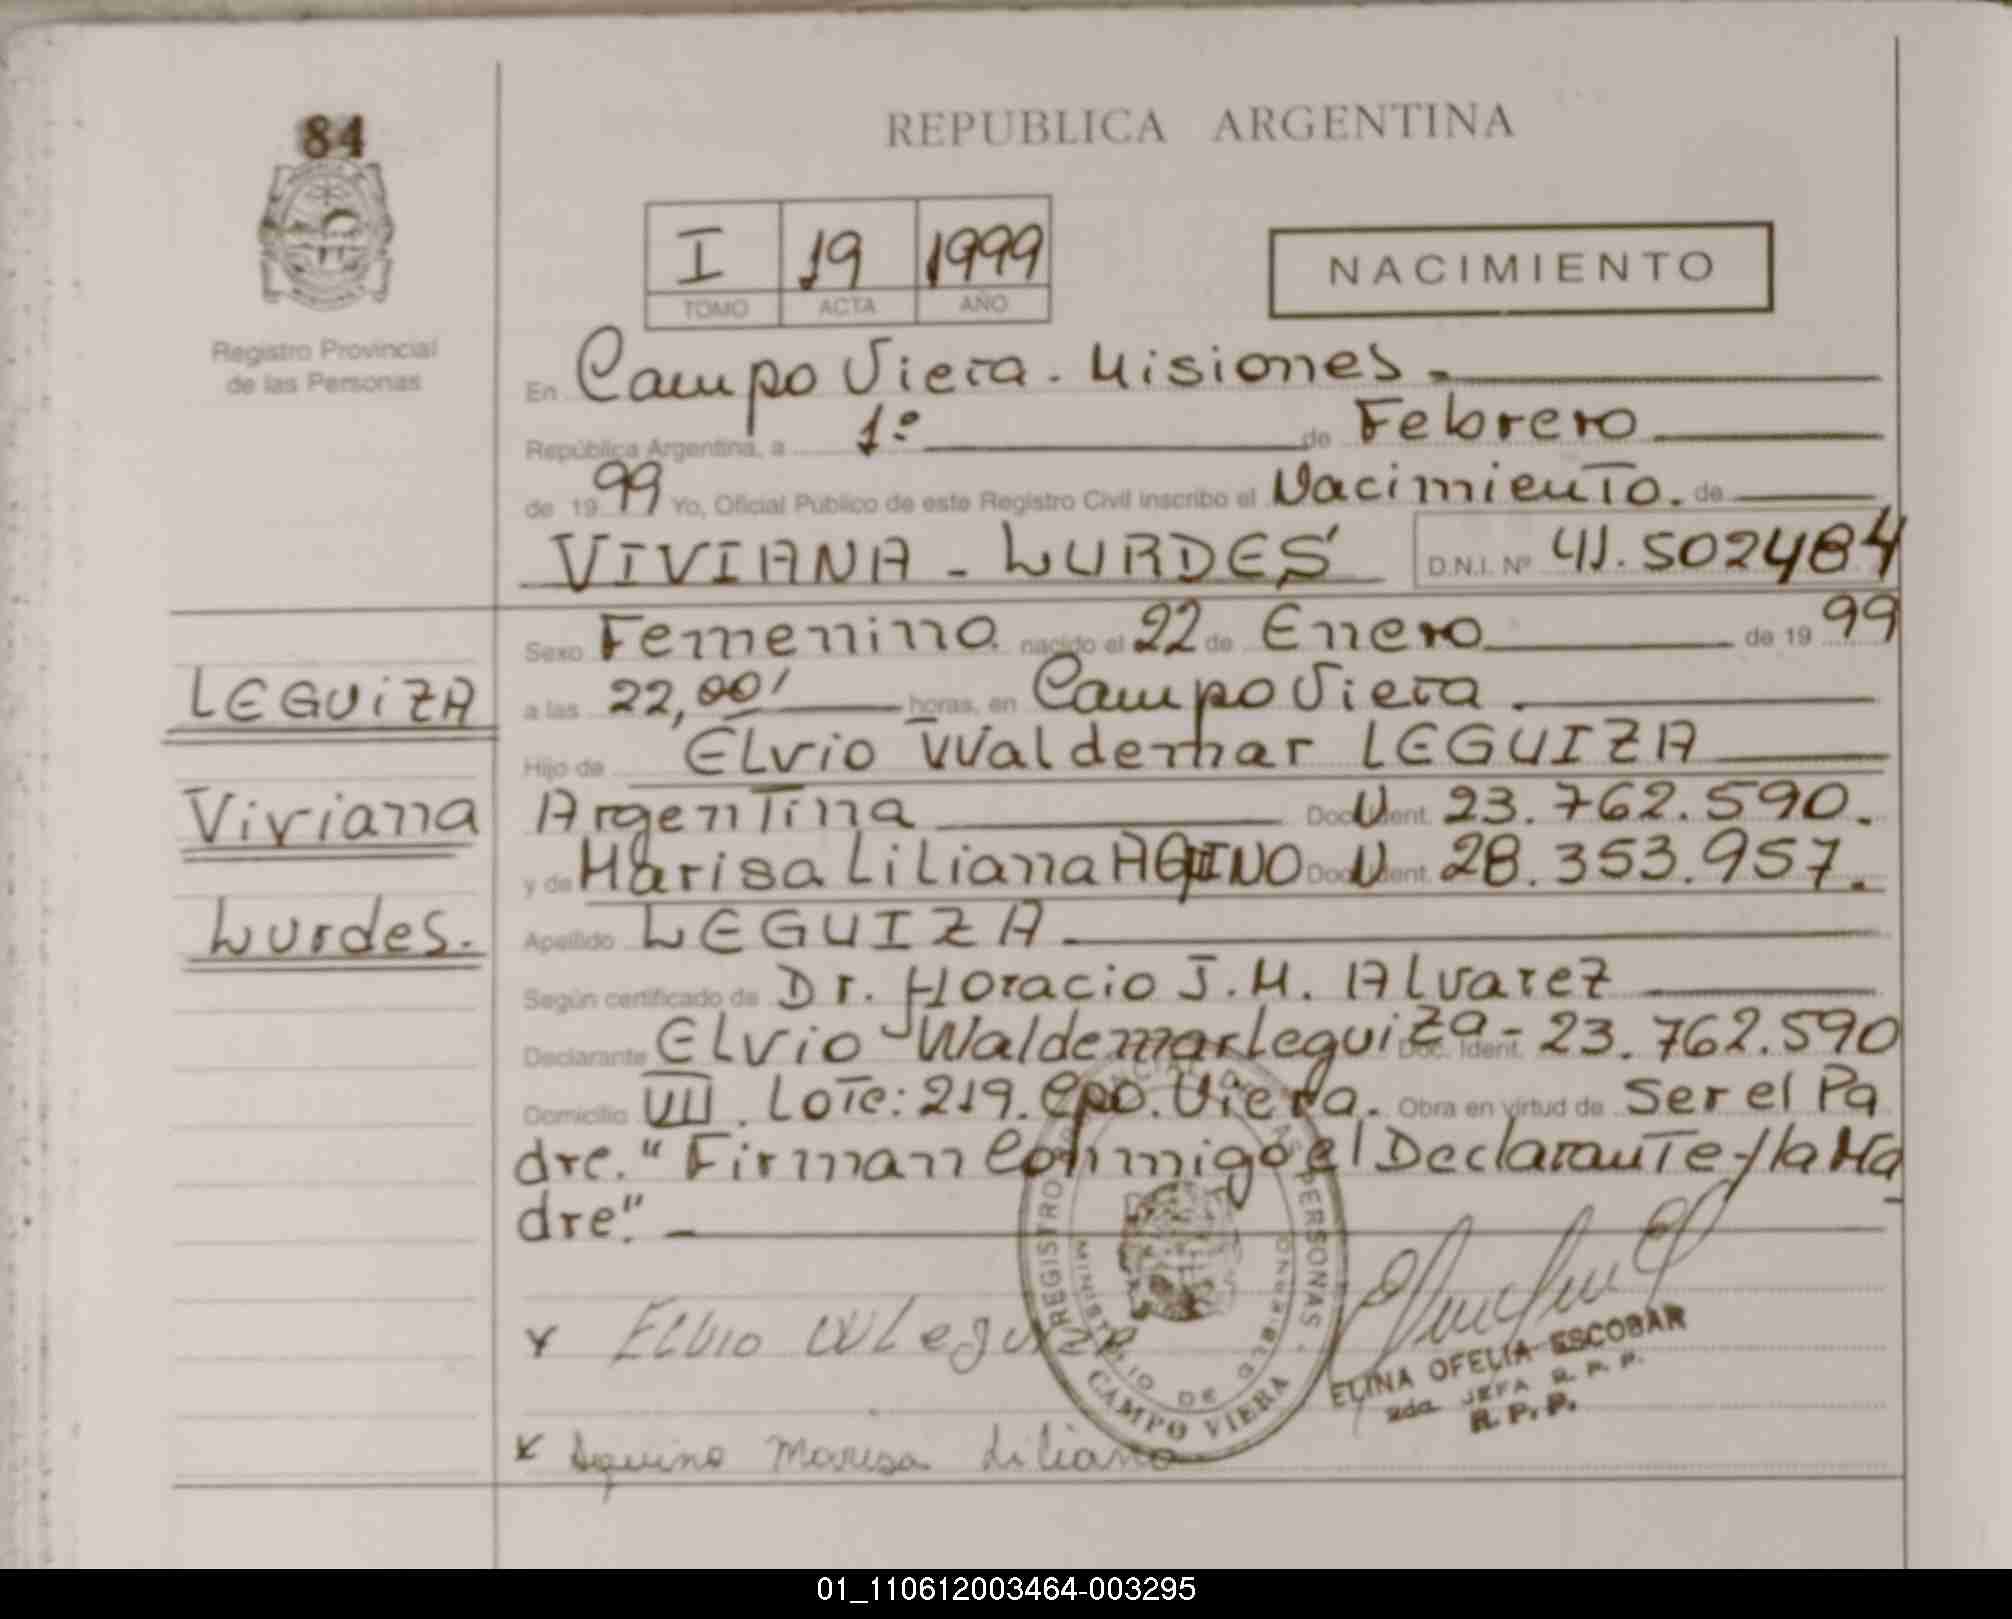 84
REPUBLICA ARGENTINA
I 19 1999
TOMO ACTA AÑO
NACIMIENTO
Registro Provincial
de las Personas
En Campo Viera - Misiones.
República Argentina, a 1º de Febrero
de 1999 Yo, Oficial Público de este Registro Civil inscribo el Nacimiento. de
VIVIANA - LURDES D.N.I. Nº 41.502484
Sexo Femenino nacido el 22 de Enero de 1999
LEGUiZA
a las 22,00' horas, en Campo Viera.
Hijo de Elvio Waldemar LEGUIZA
Viviana
Argentina Doc. Ident. 23.762.590.
y de Marisa Liliana AQUINO Doc. Ident. 28.353.957.
Lurdes.
Apellido LEGUIZA
Según certificado de Dr. Horacio J.M. Alvarez
Declarante Elvio Waldemar Leguiza - Doc. Ident. 23.762.590
Domicilio Lote: 219. Cpo. Viera. Obra en virtud de Ser el Pa
dre. "Firman Conmigo el Declarante y la Ma
dre".
Elvio W Leguiza
Aquino Marisa Liliana
REGISTRO PROVINCIAL DE LAS PERSONAS
MINISTERIO DE GOBIERNO
CAMPO VIERA
ELINA OFELIA ESCOBAR
2da JEFA R. P. P.
R. P. P.
01_110612003464-003295